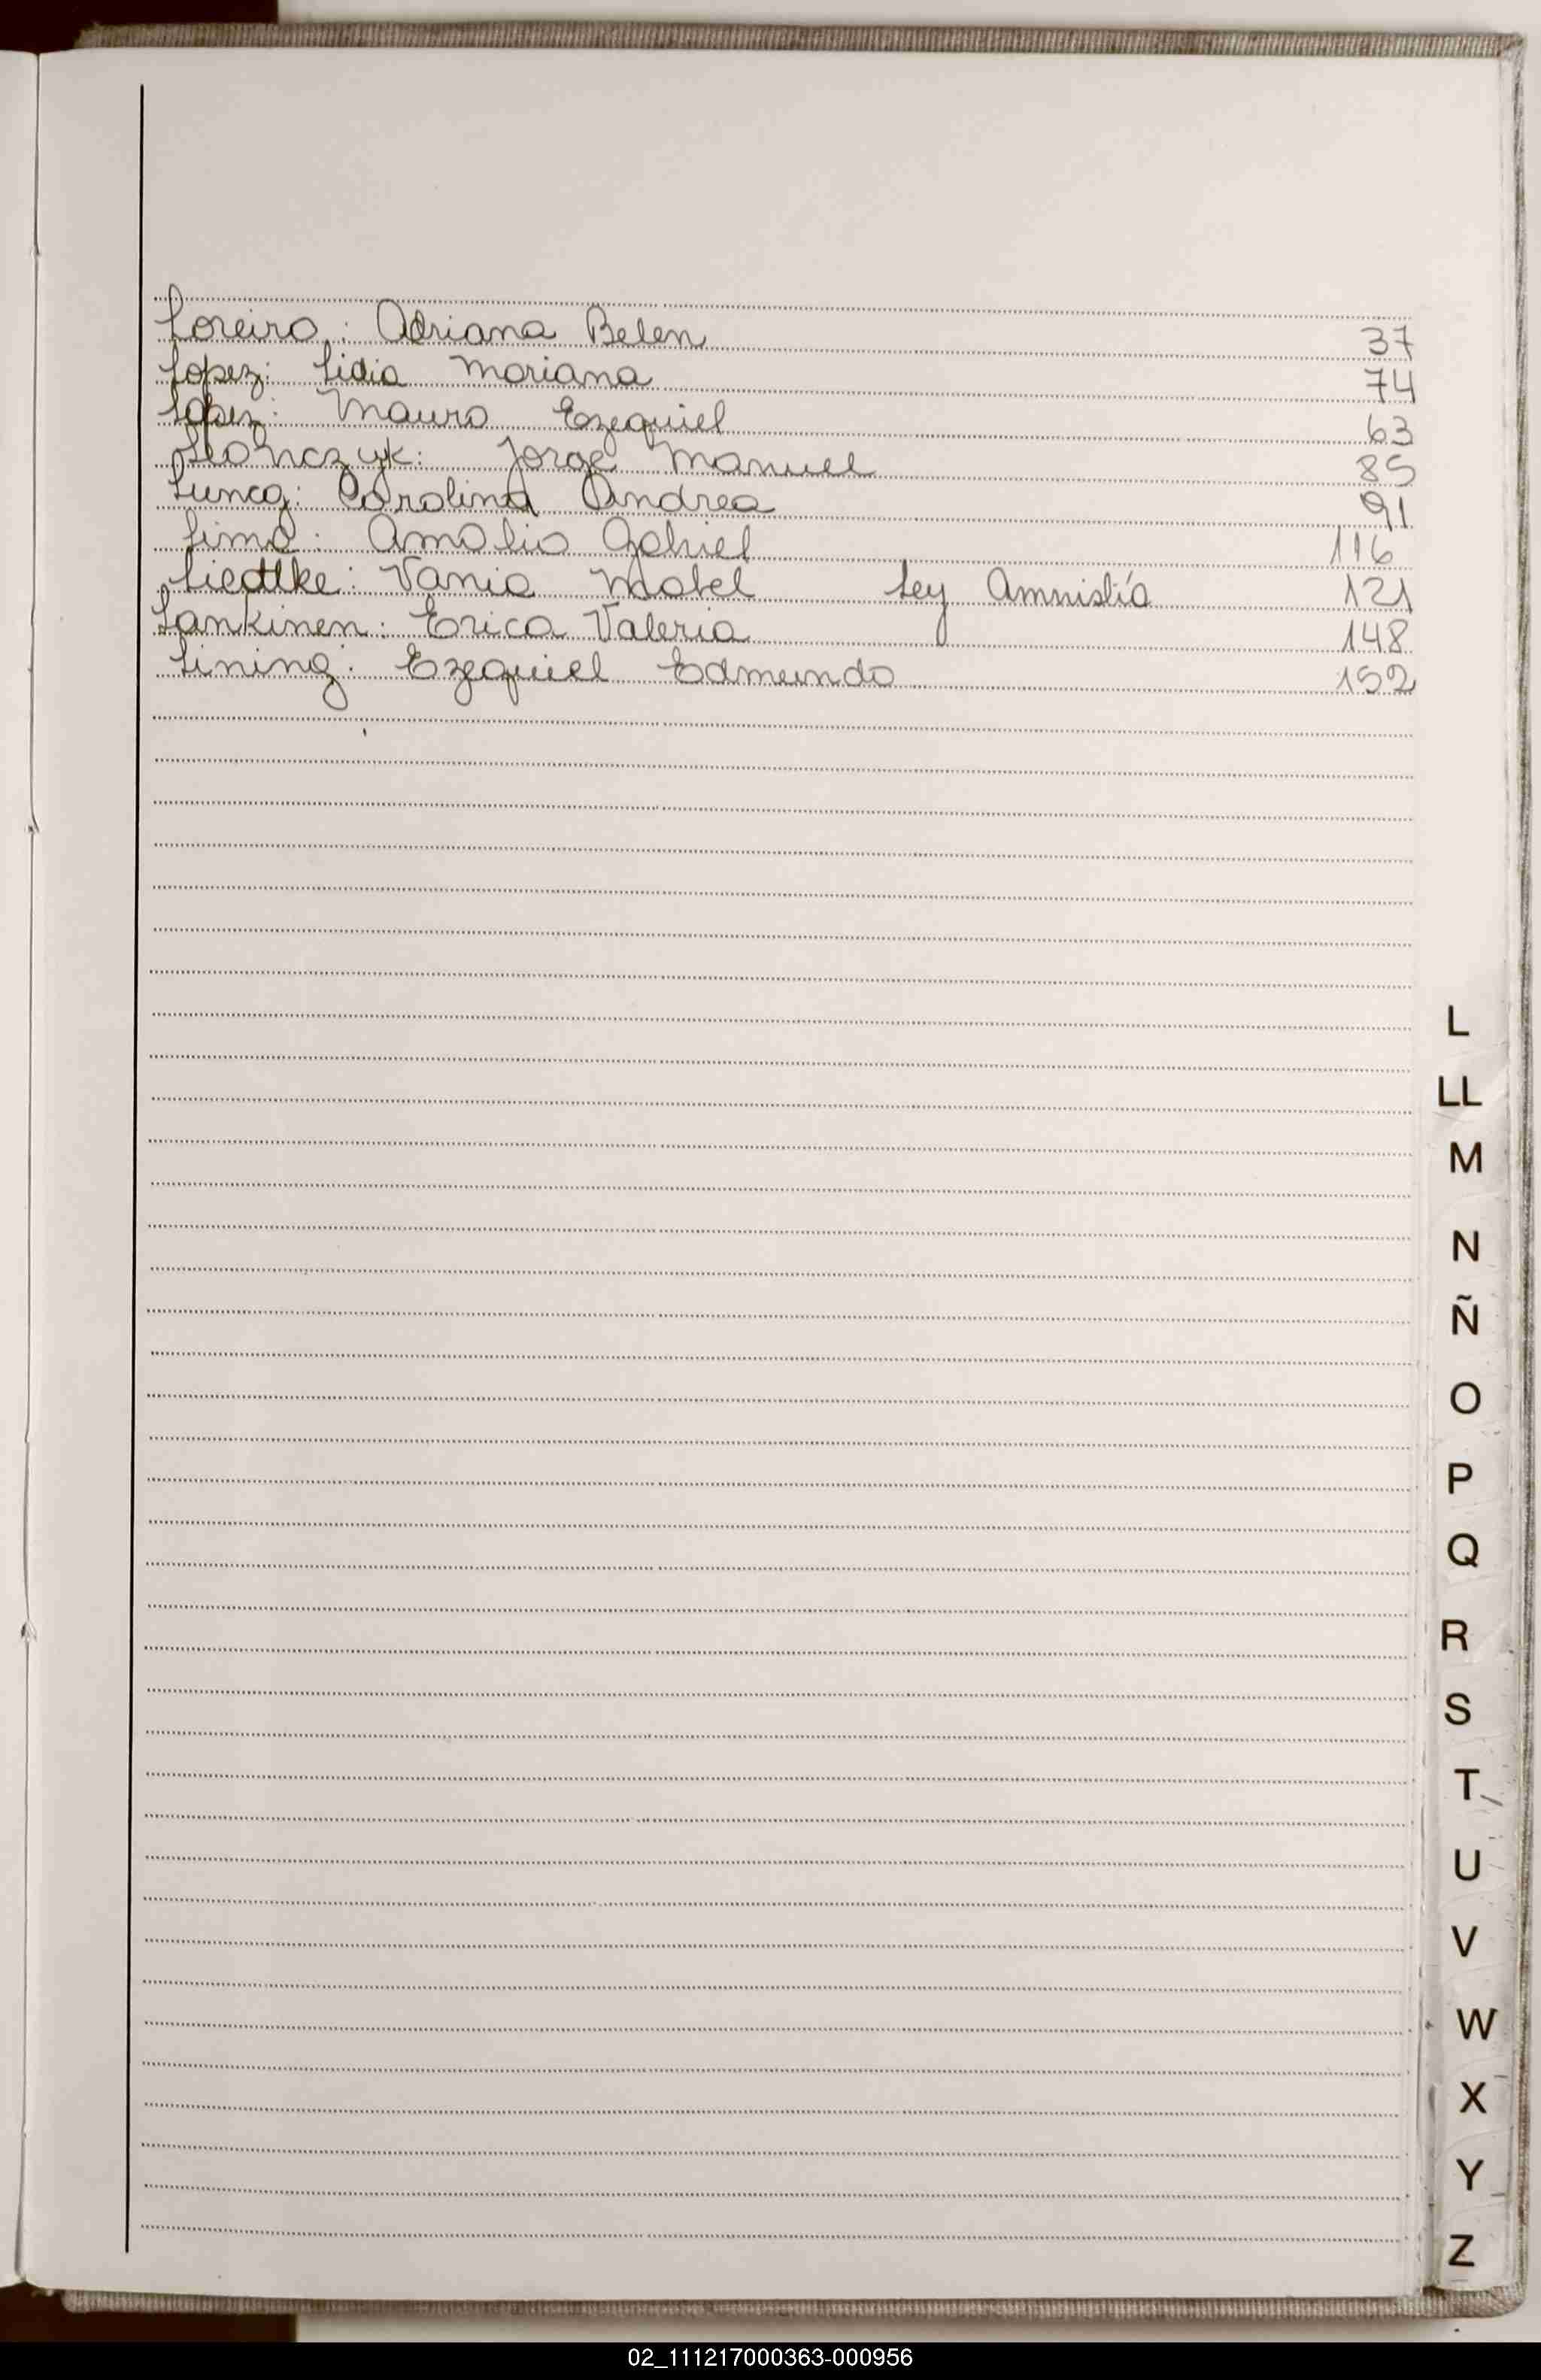 Loreiro: Adriana Belen 37
Lopez: Lidia Mariana 74
Lopez: Mauro Ezequiel 63
Jorge Manuel 85
Luncg: Carolina Andrea 91
Lima: Amalio Gabriel 116
Liedtke: Vania Mabel Ley Amnistía 121
Lankinen: Erica Valeria 148
Lining: Ezequiel Edmundo 152
L
LL
M
N
Ñ
O
P
Q
R
S
T
U
V
W
X
Y
Z
02_111217000363-000956